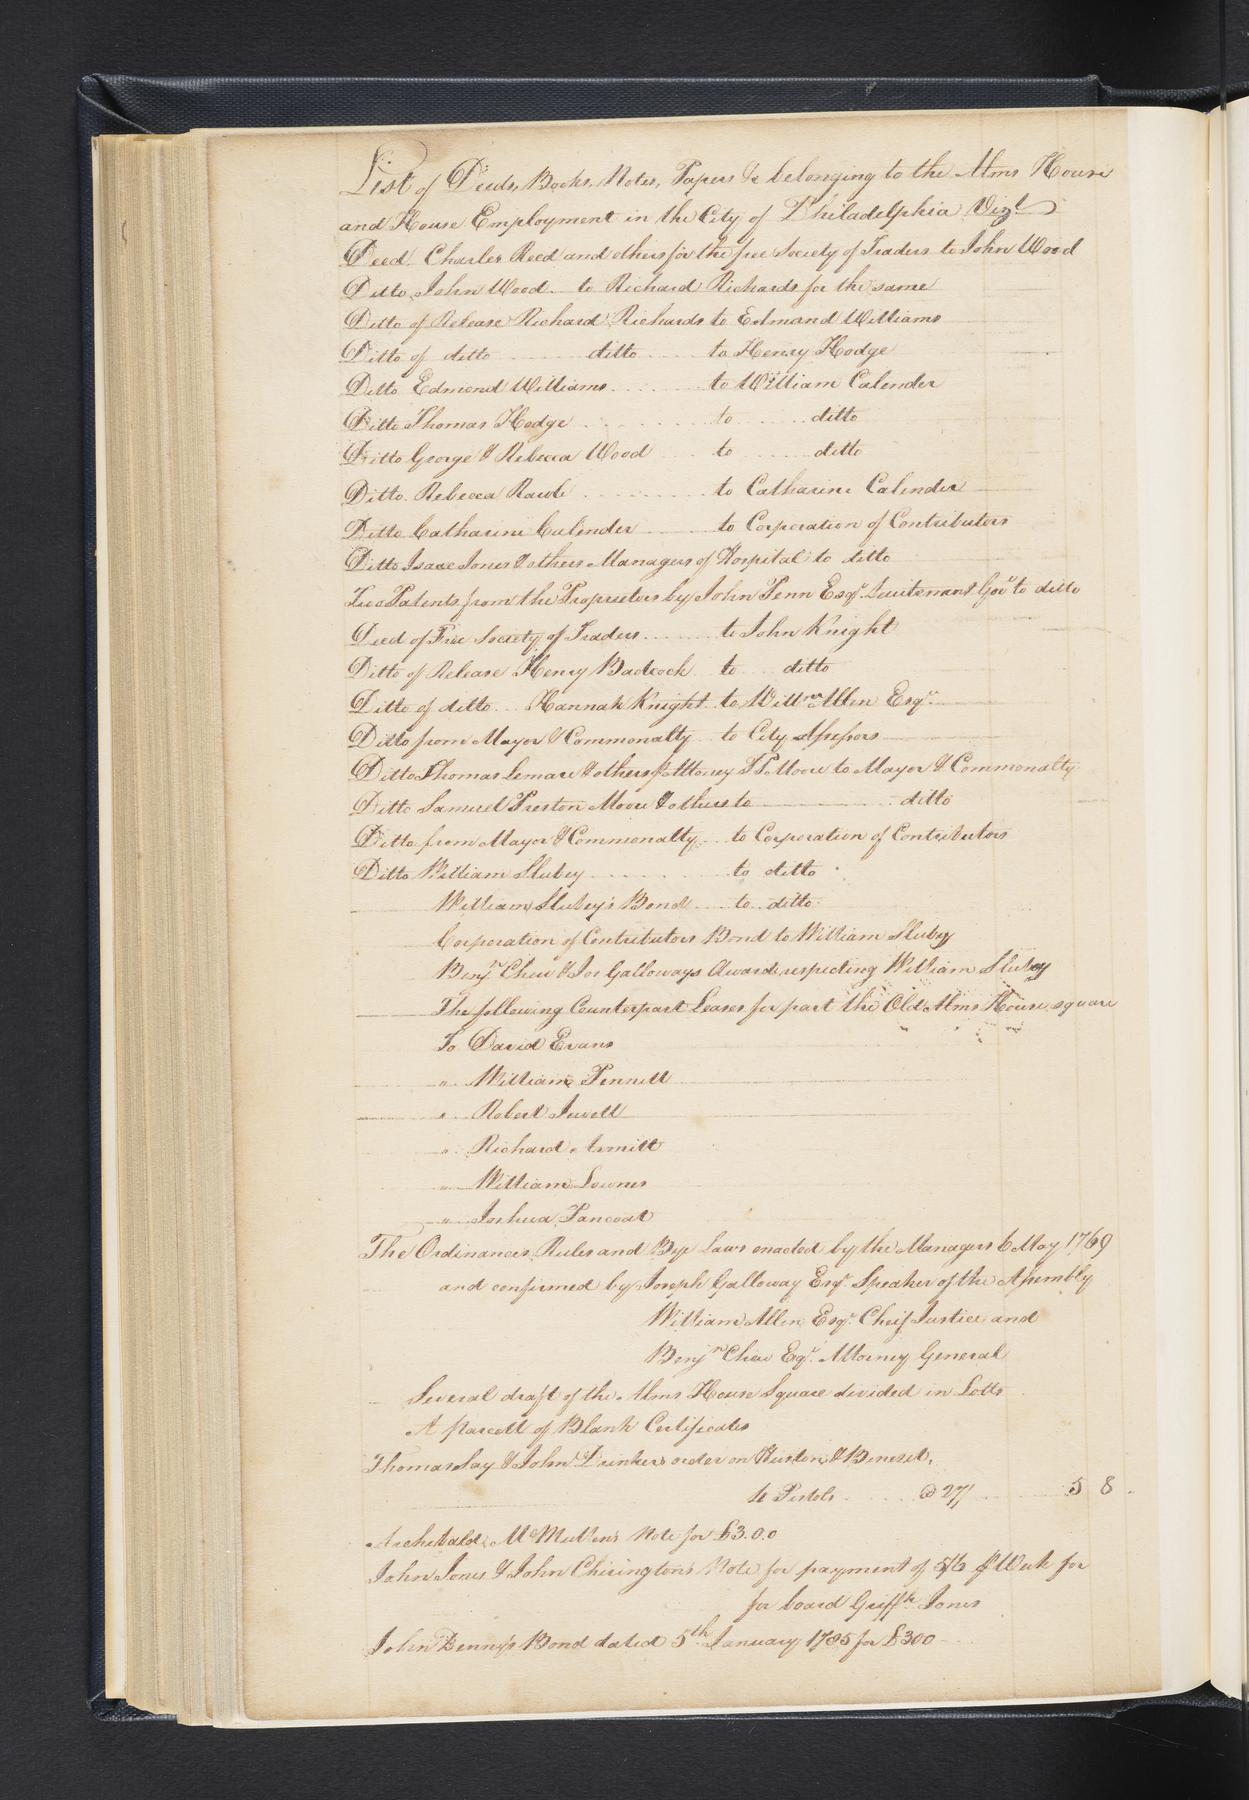 List of Deeds, Books, Notes, Papers &c belonging to the Alms House
and House Employment in the City of Philadelphia Vizt
Deed Charles Reed and others for the free Society of Traders to John Wood
Ditto John Wood to Richard Richards for the same
Ditto of Release Richard Richards to Edmand Williams
Ditto of ditto ditto to Henry Hodge
Ditto Edmond Williams to William Calender
Ditto Thomas Hodge to ditto
Ditto George & Rebecca Wood to ditto
Ditto Rebecca Rawle to Catharine Calender
Ditto Catharine Calender to Corporation of Contributors
Ditto Isaac Jones & others Managers of Hospital to ditto
Two Patents from the Proprietors by John Penn Esqr Lieutenant Govr to ditto
Deed of Free Society of Traders to John Knight
Ditto of Release Henry Badcock to ditto
Ditto of ditto Hannah Knight to Willm Allen Esqr
Ditto from Mayor & Commonalty to City Assessors
Ditto Thomas Lemare & others p Attorney S P Moore to Mayor & Commonalty
Ditto Samuel Preston Moore & others to ditto
Ditto from Mayor & Commonalty to Corporation of Contributors
Ditto William Slubey to ditto
William Slubey's Bond to ditto
Corporation of Contributors Bond to William Slubey
Benjn Chew & Jos Galloways Award respecting William Slubey
The following Counterpart Leases for part the Old Alms House square
To David Evans
" William Pennell
" Robert Jewell
" Richard Armitt
" William Lownes
" Joshua Pancoat
The Ordinances, Rules and Bye Laws enacted by the Managers 6 May 1769
and confirmed by Joseph Galloway Esqr Speaker of the Assembly
William Allen Esqr Cheif Justice and
Benjn Chew Eqr Attorney General
Several draft of the Alms House Square divided in Lotts
A parcell of Blank Certificates
Thomas Say & John Drinkers order on Huston & Benezet,
4 Pistols @ 27/ 5 8
Archibald McMullen's Note for £3.0.0
John Jones & John Chiringtons Note for payment of 5/6 p Week for
for board Griffth Jones
John Denny's Bond dated 5th January 1785 for £300